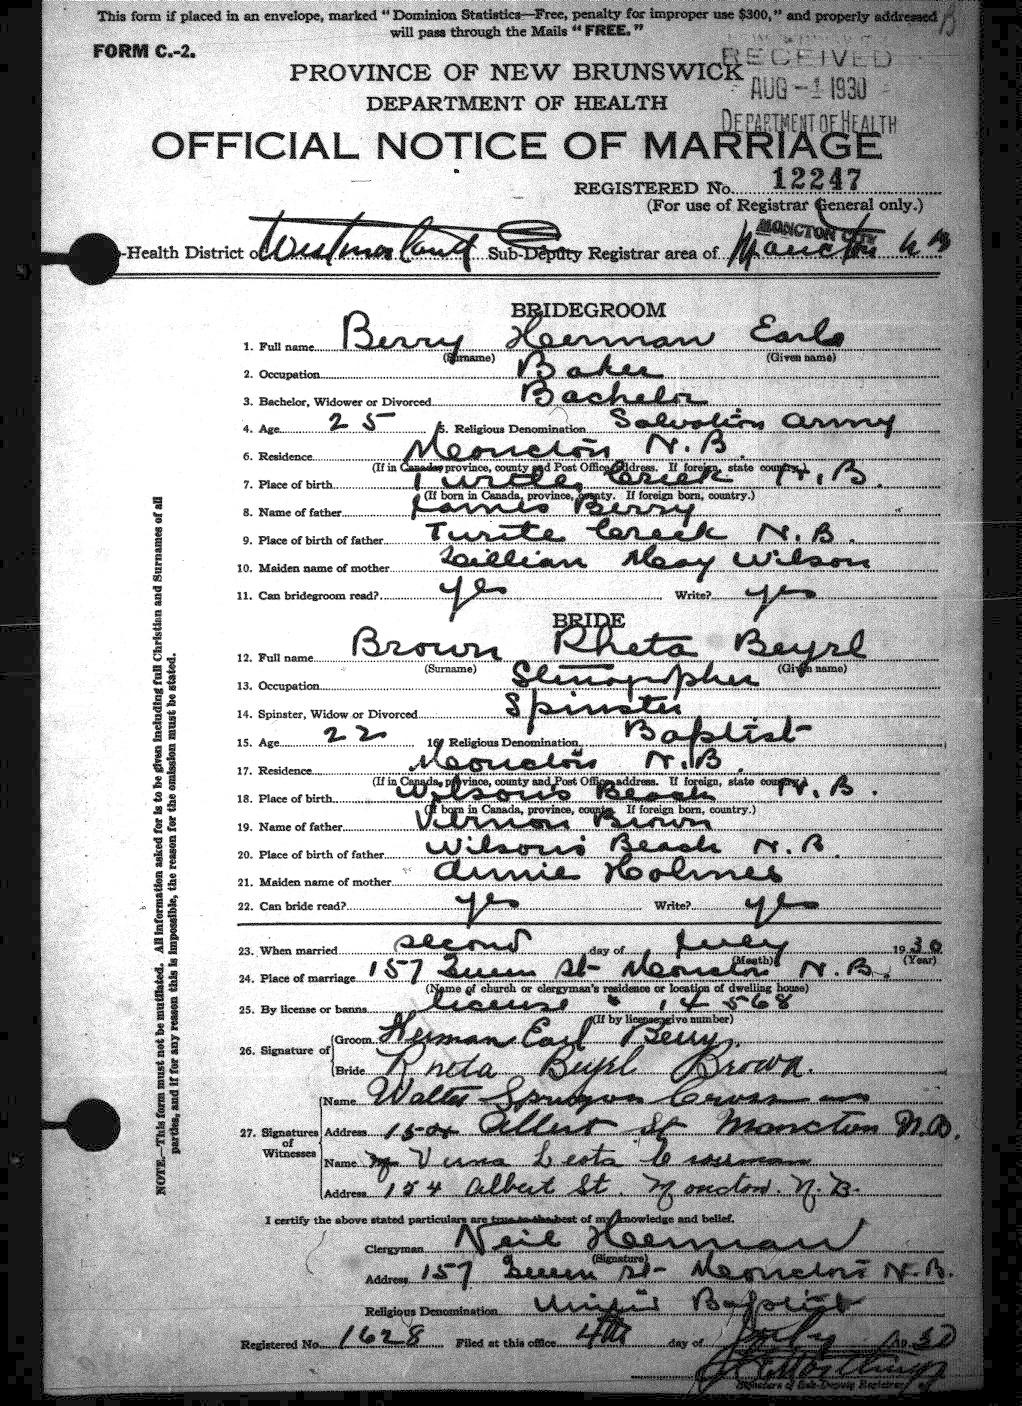 This form if placed in an envelope, marked "Dominion Statistics—Free, penalty for improper use $300," and properly addressed
will pass through the Mails "FREE."
FORM C.-2.
PROVINCE OF NEW BRUNSWICK
RECEIVED
AUG -1 1930
DEPARTMENT OF HEALTH
DEPARTMENT OF HEALTH
OFFICIAL NOTICE OF MARRIAGE
REGISTERED No. 12247
(For use of Registrar General only.)
MONCTON CITY
-Health District of Westmorland Sub-Deputy Registrar area of Moncton N B
BRIDEGROOM
1. Full name Berry Herman Earle
(Surname) (Given name)
2. Occupation Baker
3. Bachelor, Widower or Divorced Bachelor
4. Age 25 5. Religious Denomination Salvation Army
6. Residence Moncton N.B.
(If in Canada, province, county and Post Office address. If foreign, state country.)
7. Place of birth Turtle Creek N.B.
(If born in Canada, province, county. If foreign born, country.)
8. Name of father James Berry
9. Place of birth of father Turtle Creek N.B.
10. Maiden name of mother Lillian May Wilson
11. Can bridegroom read? yes Write? yes
BRIDE
12. Full name Brown Rheta Beyrl
(Surname) (Given name)
13. Occupation Stenographer
14. Spinster, Widow or Divorced Spinster
15. Age 22 16. Religious Denomination Baptist
17. Residence Moncton N.B.
(If in Canada, province, county and Post Office address. If foreign, state country.)
18. Place of birth Wilson's Beach N.B.
(If born in Canada, province, county. If foreign born, country.)
19. Name of father Vernon Brown
20. Place of birth of father Wilson's Beach N.B.
21. Maiden name of mother Annie Holmes
22. Can bride read? yes Write? yes
23. When married second day of July 1930
(Month) (Year)
24. Place of marriage 157 Queen St Moncton N.B.
(Name of church or clergyman's residence or location of dwelling house)
25. By license or banns license 14568
(If by license give number)
26. Signature of
Groom Herman Earl Berry.
Bride Rheta Beyrl Brown.
27. Signatures of Witnesses
Name Walter
Address Albert St Moncton N.B.
Name Verna Leota Crossman
Address 154 Albert St. Moncton. N.B.
I certify the above stated particulars are true to the best of my knowledge and belief.
Clergyman Neil Herman
(Signature)
Address 157 Queen St- Moncton N.B.
Religious Denomination United Baptist
Registered No. 1628 Filed at this office 4th day of July 1930
Signature of Sub-Deputy Registrar
NOTE.—This form must not be mutilated. All information asked for is to be given including full Christian and Surnames of all
parties, and if for any reason this is impossible, the reason for the omission must be stated.